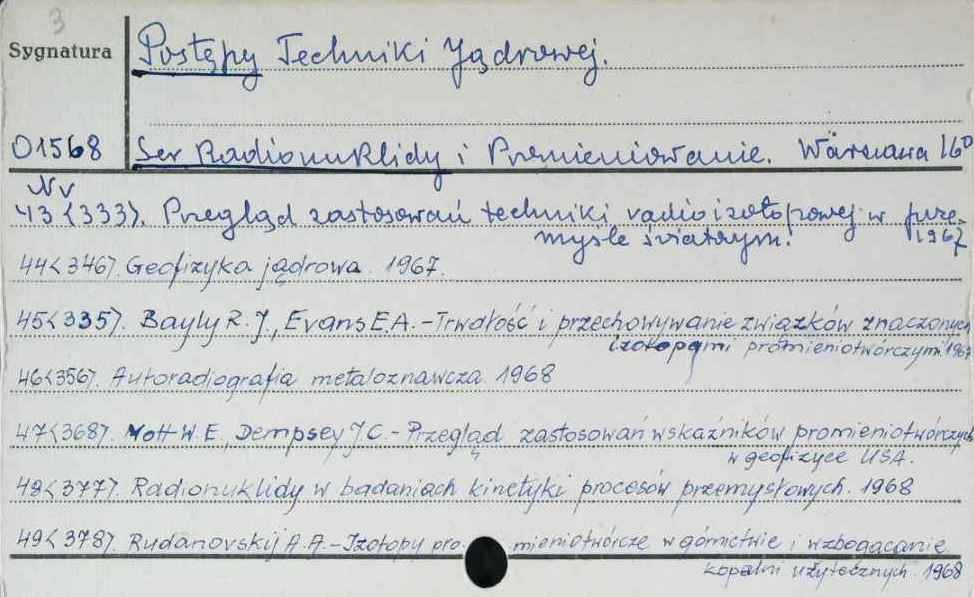 3
Sygnatura
Postępy Techniki Jądrowej.
O1568
Ser Radionuklidy i Promieniowanie. Warszawa 16°
Nr
43 <333>. Przegląd zastosowań techniki radioizotopowej w prze-
myśle światowym. 1967
44 <346>. Geofizyka jądrowa. 1967.
45 <335>. Bayly R. J., Evans E.A. - Trwałość i przechowywanie związków znaczonych
izotopami promieniotwórczymi. 1967
46 <356>. Autoradiografia metaloznawcza. 1968
47 <368>. Mott W. E., Dempsey J C. - Przegląd zastosowań wskaźników promieniotwórczych
w geofizyce USA.
48 <377>. Radionuklidy w badaniach kinetyki procesów przemysłowych. 1968
49 <378>. Rudanovskij A. A. - Izotopy promieniotwórcze w górnictwie i wzbogacanie
kopalin użytecznych. 1968